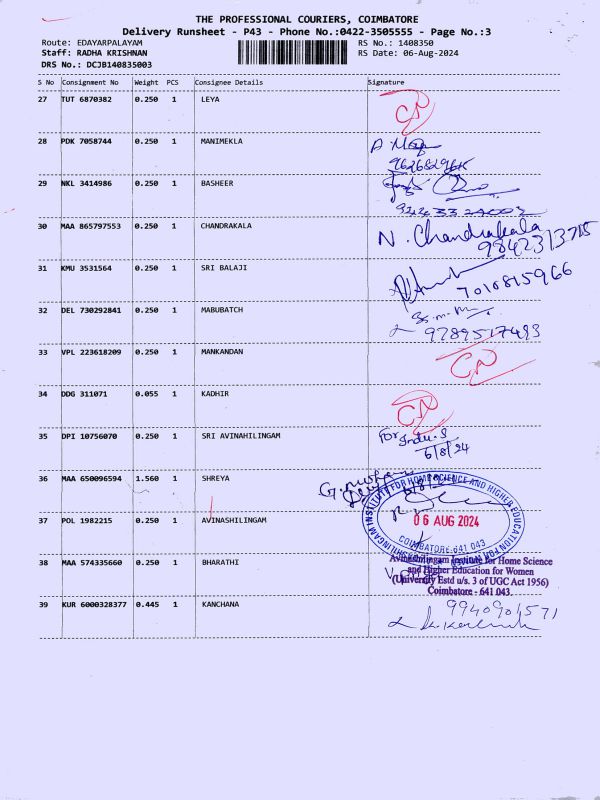 THE PROFESSIONAL COURIERS, COIMBATORE
Delivery Runsheet - P43 - Phone No.:0422-3505555 - Page No.:3
Route: EDAYARPALAYAM
Staff: RADHA KRISHNAN
DRS No.: DCJB140835003
RS No.: 1408350
RS Date: 06-Aug-2024
S No Consignment No Weight PCS Consignee Details Signature
27 TUT 6870382 0.250 1 LEYA
28 PDK 7058744 0.250 1 MANIMEKLA
29 NKL 3414986 0.250 1 BASHEER
30 MAA 865797553 0.250 1 CHANDRAKALA N. Chandrakala
9842313715
31 KMU 3531564 0.250 1 SRI BALAJI
7010815966
32 DEL 730292841 0.250 1 MABUBATCH
9789517493
33 VPL 223618209 0.250 1 MANKANDAN
34 DDG 311071 0.055 1 KADHIR
35 DPI 10756070 0.250 1 SRI AVINAHILINGAM For Indu.S
6/8/24
36 MAA 650096594 1.560 1 SHREYA
37 POL 1982215 0.250 1 AVINASHILINGAM
06 AUG 2024
COIMBATORE-641 043
38 MAA 574335660 0.250 1 BHARATHI
Avinashilingam Institute for Home Science
and Higher Education for Women
(University Estd u/s. 3 of UGC Act 1956)
Coimbatore - 641 043.
39 KUR 6000328377 0.445 1 KANCHANA
9940901571